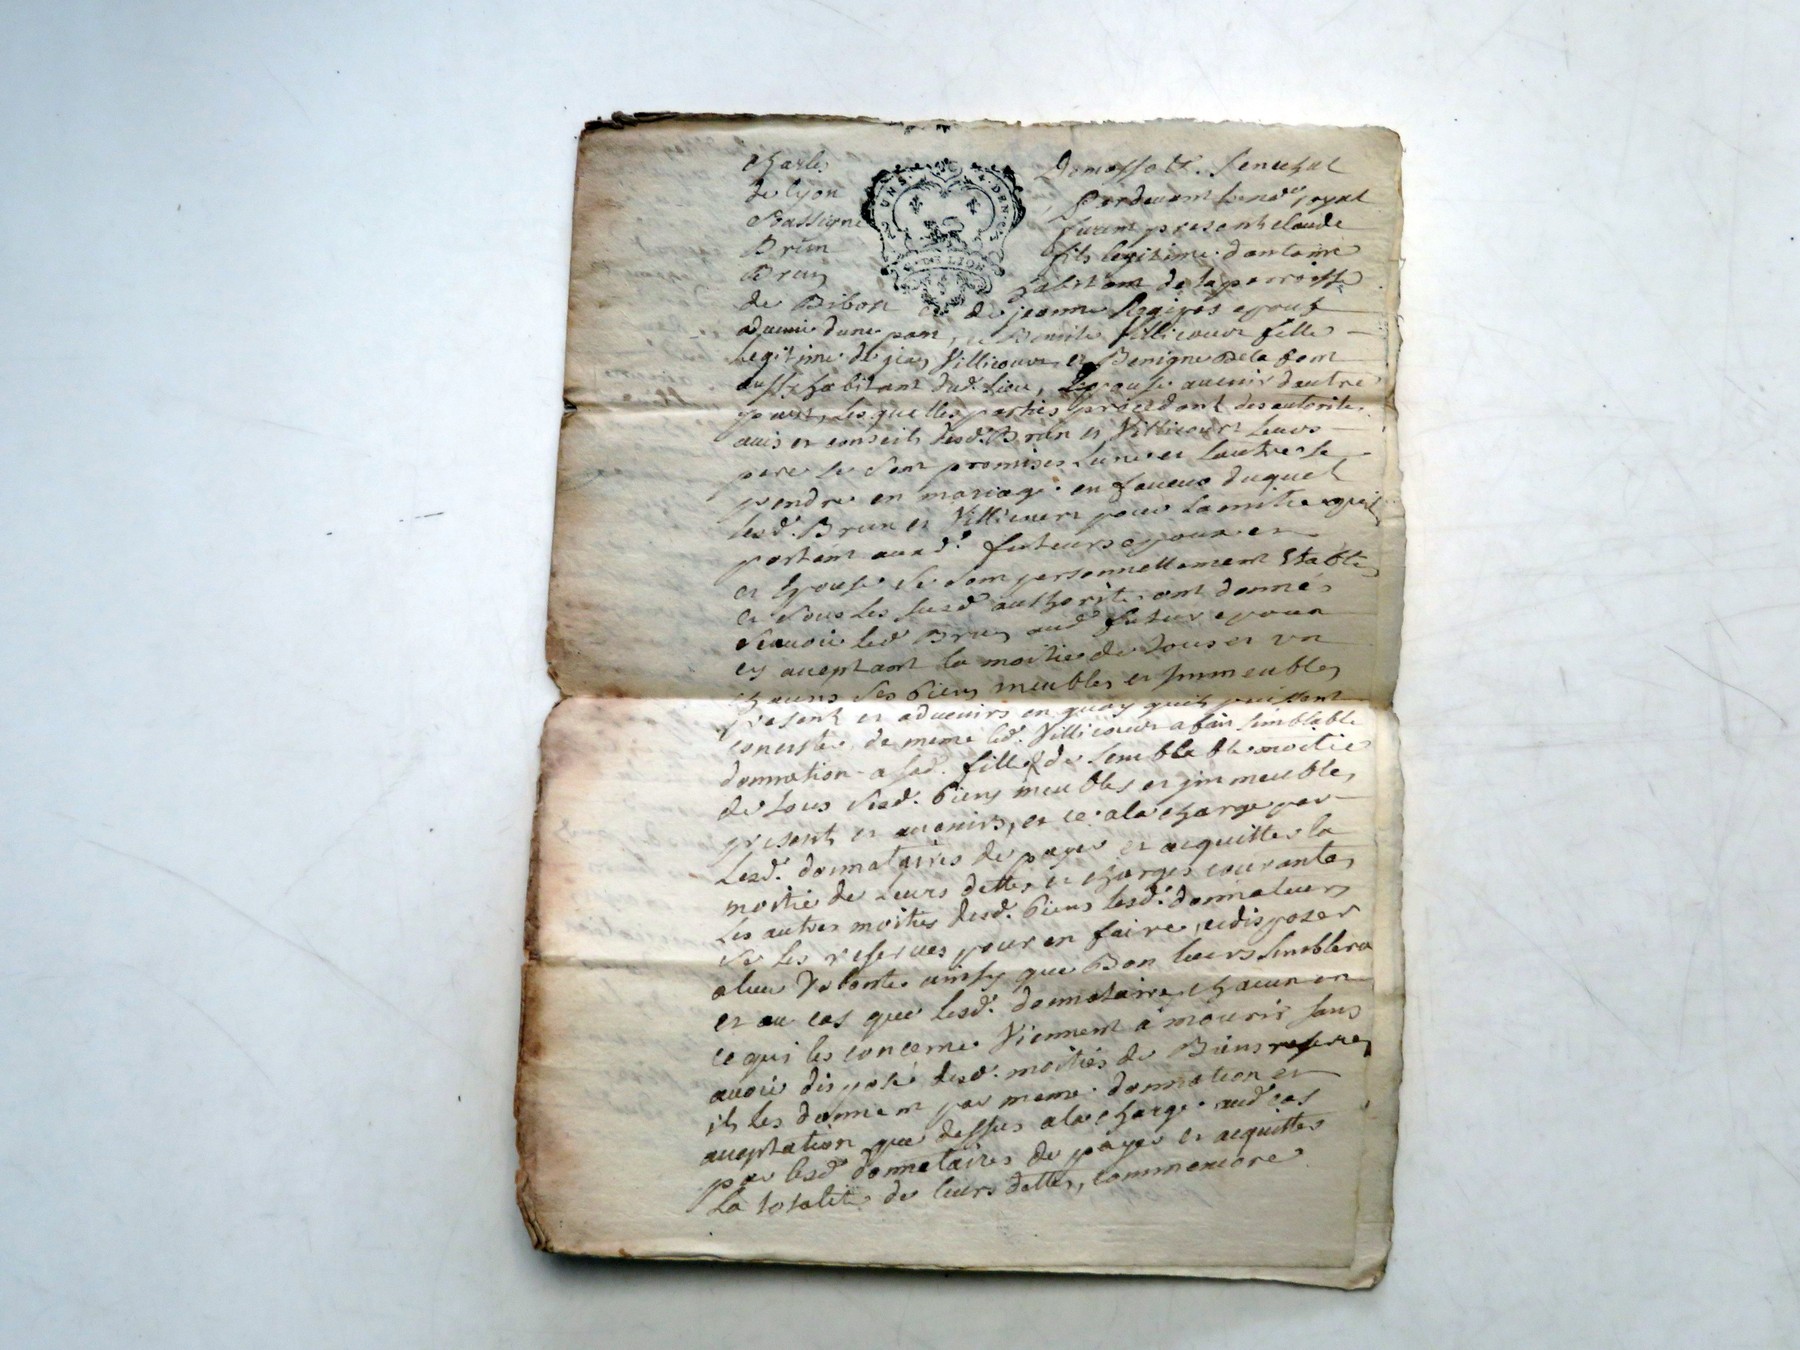 Charles Demasso &c. Senechal
de Lyon, Pardevant le no.re royal
soussigne furent presents claude
Brun fils legitime d'antoine
Brun habitant de la parroisse
de Bibost et de jeanne epoux
aduenir d'une part, et Benoite Villicourt fille
legitime de jean Villicourt et Benigne Dela font
aussy habitant dud. Lieu, Epouse auenir d'autre
part, Lesquelles parties procedant des autorites
auis et conseils desd. Brun et Villicourt leurs
pere se sont promises l'une et l'autre se
prendre en mariage. en faueur duquel
lesd. Brun et Villicourt pour l'amitie quils
portent auxd. futurs epoux et
et Epouse se sont personnellement Etablis
et sous les susd. authorites ont donnés
scauoir led. Brun aud. futur epoux
cy aceptant la moitie de tous et un
chacuns ses biens meubles et Immeubles
present et aduenirs en quoy quils puissent
conciste de meme led. Villicourt a fait semblable
donnation a sad. fille de semblable moitie
de tous sesd. biens meubles et immeubles
present et auenirs, et ce a la charge par
Lesd. donnataires de payer et acquitter la
moitie de leurs dettes et charges courantes
Les autres moities desd. biens lesd. donnateurs
se les reserves pour en faire et disposer
a leur Volonte ainsy que Bon leurs semblera
et au cas que lesd. donnataires chacun en
ce qui les concerne Viennent à mourir sans
auoir disposé desd. moities de Biens reserves
ils les donnent par meme donnation et
aceptation que dessus a la charge aud. cas
par lesd. donnataires de payer et acquitter
La totalité de leurs dettes, comme encore
G. DE LYON